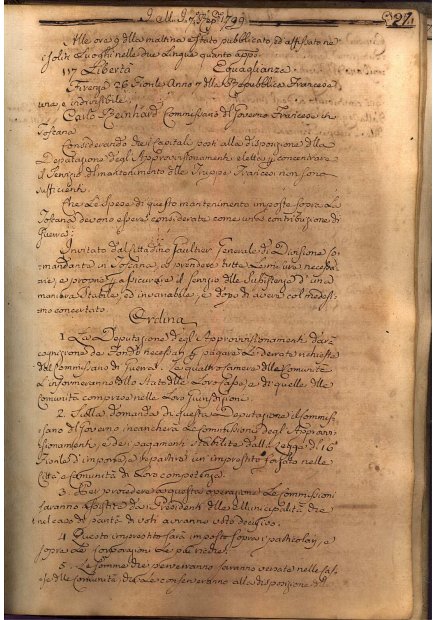 1799
97.
Alle ore 9 della mattina è stato pubblicato, ed affisso ne
i soliti Luoghi nelle due Lingue quanto app.o
Libertà Eguaglianza
Firenze 26 Fiorile Anno 7 della Repubblica Francese
una, e indivisibile.
Carlo Reinhard Commissario del Governo Francese in
Toscana
Considerando che i Capitali posti alla disposizione della
Deputazione degli Approvvisionamenti eletta p concentrare
il Servizio di mantenimento delle Truppe Francesi non sono
sufficienti.
Che le spese di questo mantenimento imposte sopra la
Toscana devono essere considerate come una contribuzione di
Guerra;
Invitato dal Cittadino Gaultier Generale di Divisione Co-
mandante in Toscana, a prendere tutte le misure necessa-
rie, e proprie p assicurare il servizio delle Sussistenze d'una
maniera stabile, ed invariabile, e dopo di avere col medesi-
mo concertato
Ordina
1. La Deputazione degli Approvvisionamenti darà
cognizione dei Fondi necessarj p pagare le derrate richieste
dal Commissario di Guerra. Le quattro Camere delle Comunità
informeranno dello stato delle Loro Casse, e di quelle delle
Comunità comprese nelle Loro Giurisdizioni.
2. Sulla domanda di questa Deputazione il Commis-
sario del Governo, incaricherà le Commissioni degli Approv-
visionamenti, e dei pagamenti stabilite dalla Legge di 16
Fiorile d'imporre, e repartire un imprestito forzato nelle
Città e Comunità di Loro competenza.
3. Per procedere a questa operazione le Commissioni
saranno assistite dai Presidenti delle Municipalità, che
nel caso di parità di voti avranno voto decisivo.
4. Questo imprestito sarà imposto sopra i particolari, e
sopra le Corporazioni le più ricche.
5. Le somme che perverranno saranno versate nelle Cas-
se delle Comunità, che le conserveranno alla disposizione del